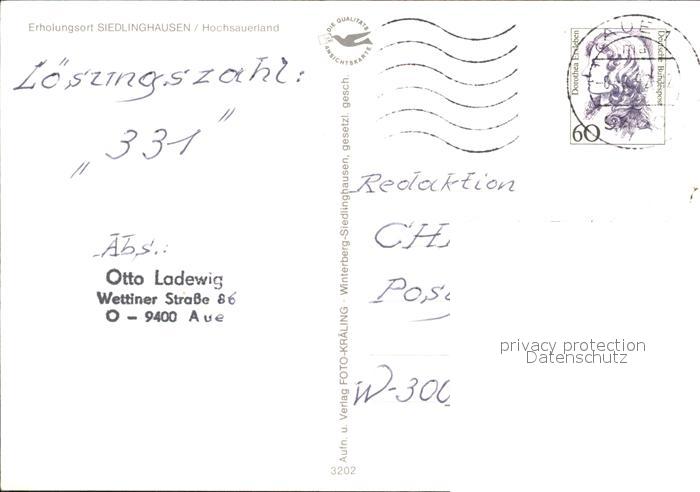 Erholungsort SIEDLINGHAUSEN / Hochsauerland
DIE QUALITÄTS
ANSICHTSKARTE
Lösungszahl:
„331"
Abs.:
Otto Ladewig
Wettiner Straße 86
O - 9400 Aue
Aufn. u. Verlag FOTO-KRÄLING · Winterberg-Siedlinghausen, gesetzl. gesch.
3202
Dorothea Erxleben
Deutsche Bundespost
60
AUE
Redaktion
CH
Pos
W-300
privacy protection
Datenschutz